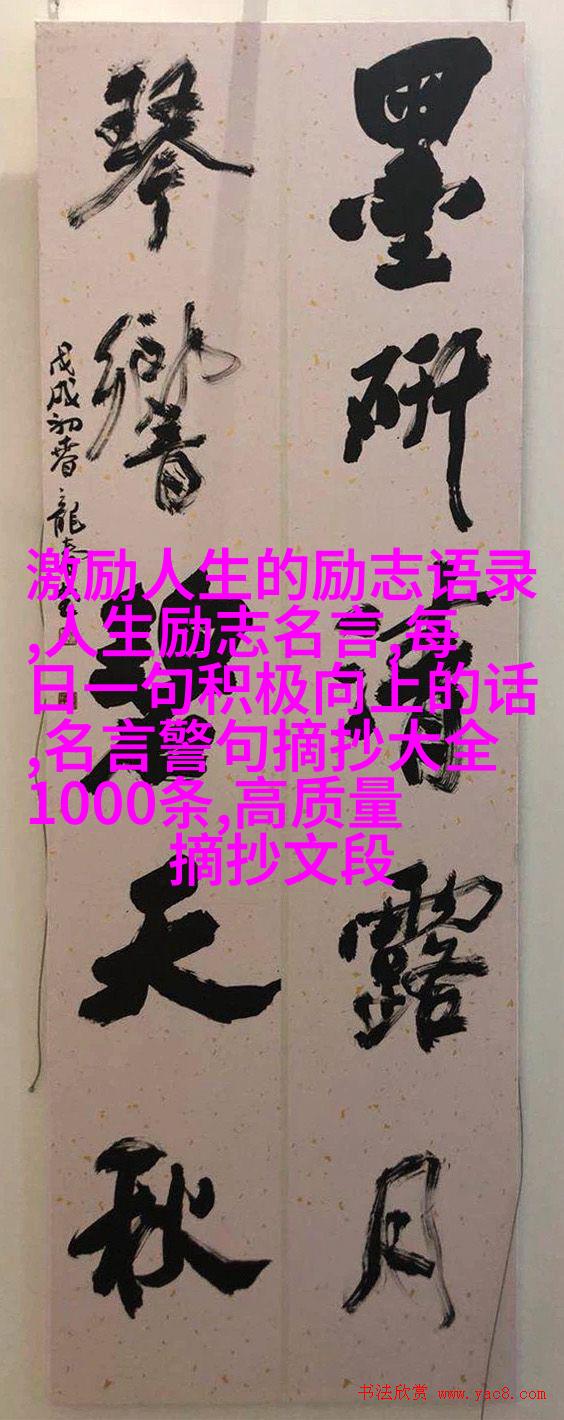 墨研清露月
琴響碧天秋
戊戌初春
龍
激励人生的励志语录
,人生励志名言,每
日一句积极向上的话
,名言警句摘抄大全
1000条,高质量
摘抄文段
书法欣赏 www.yac8.com